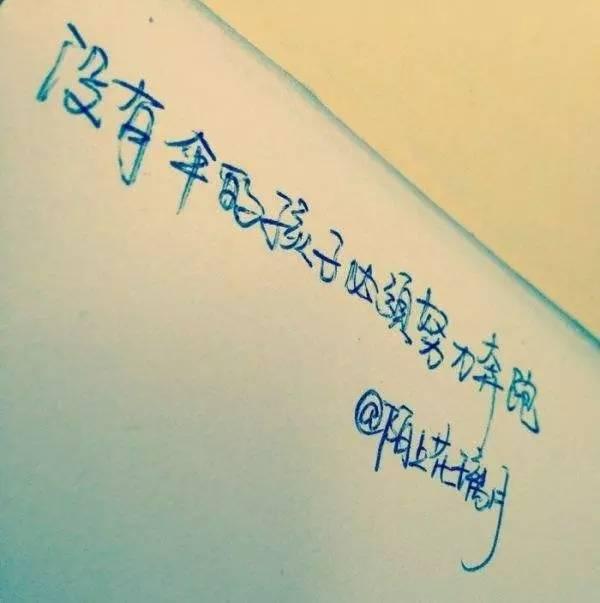 没有伞的孩子必须努力奔跑
@陌上花璃月